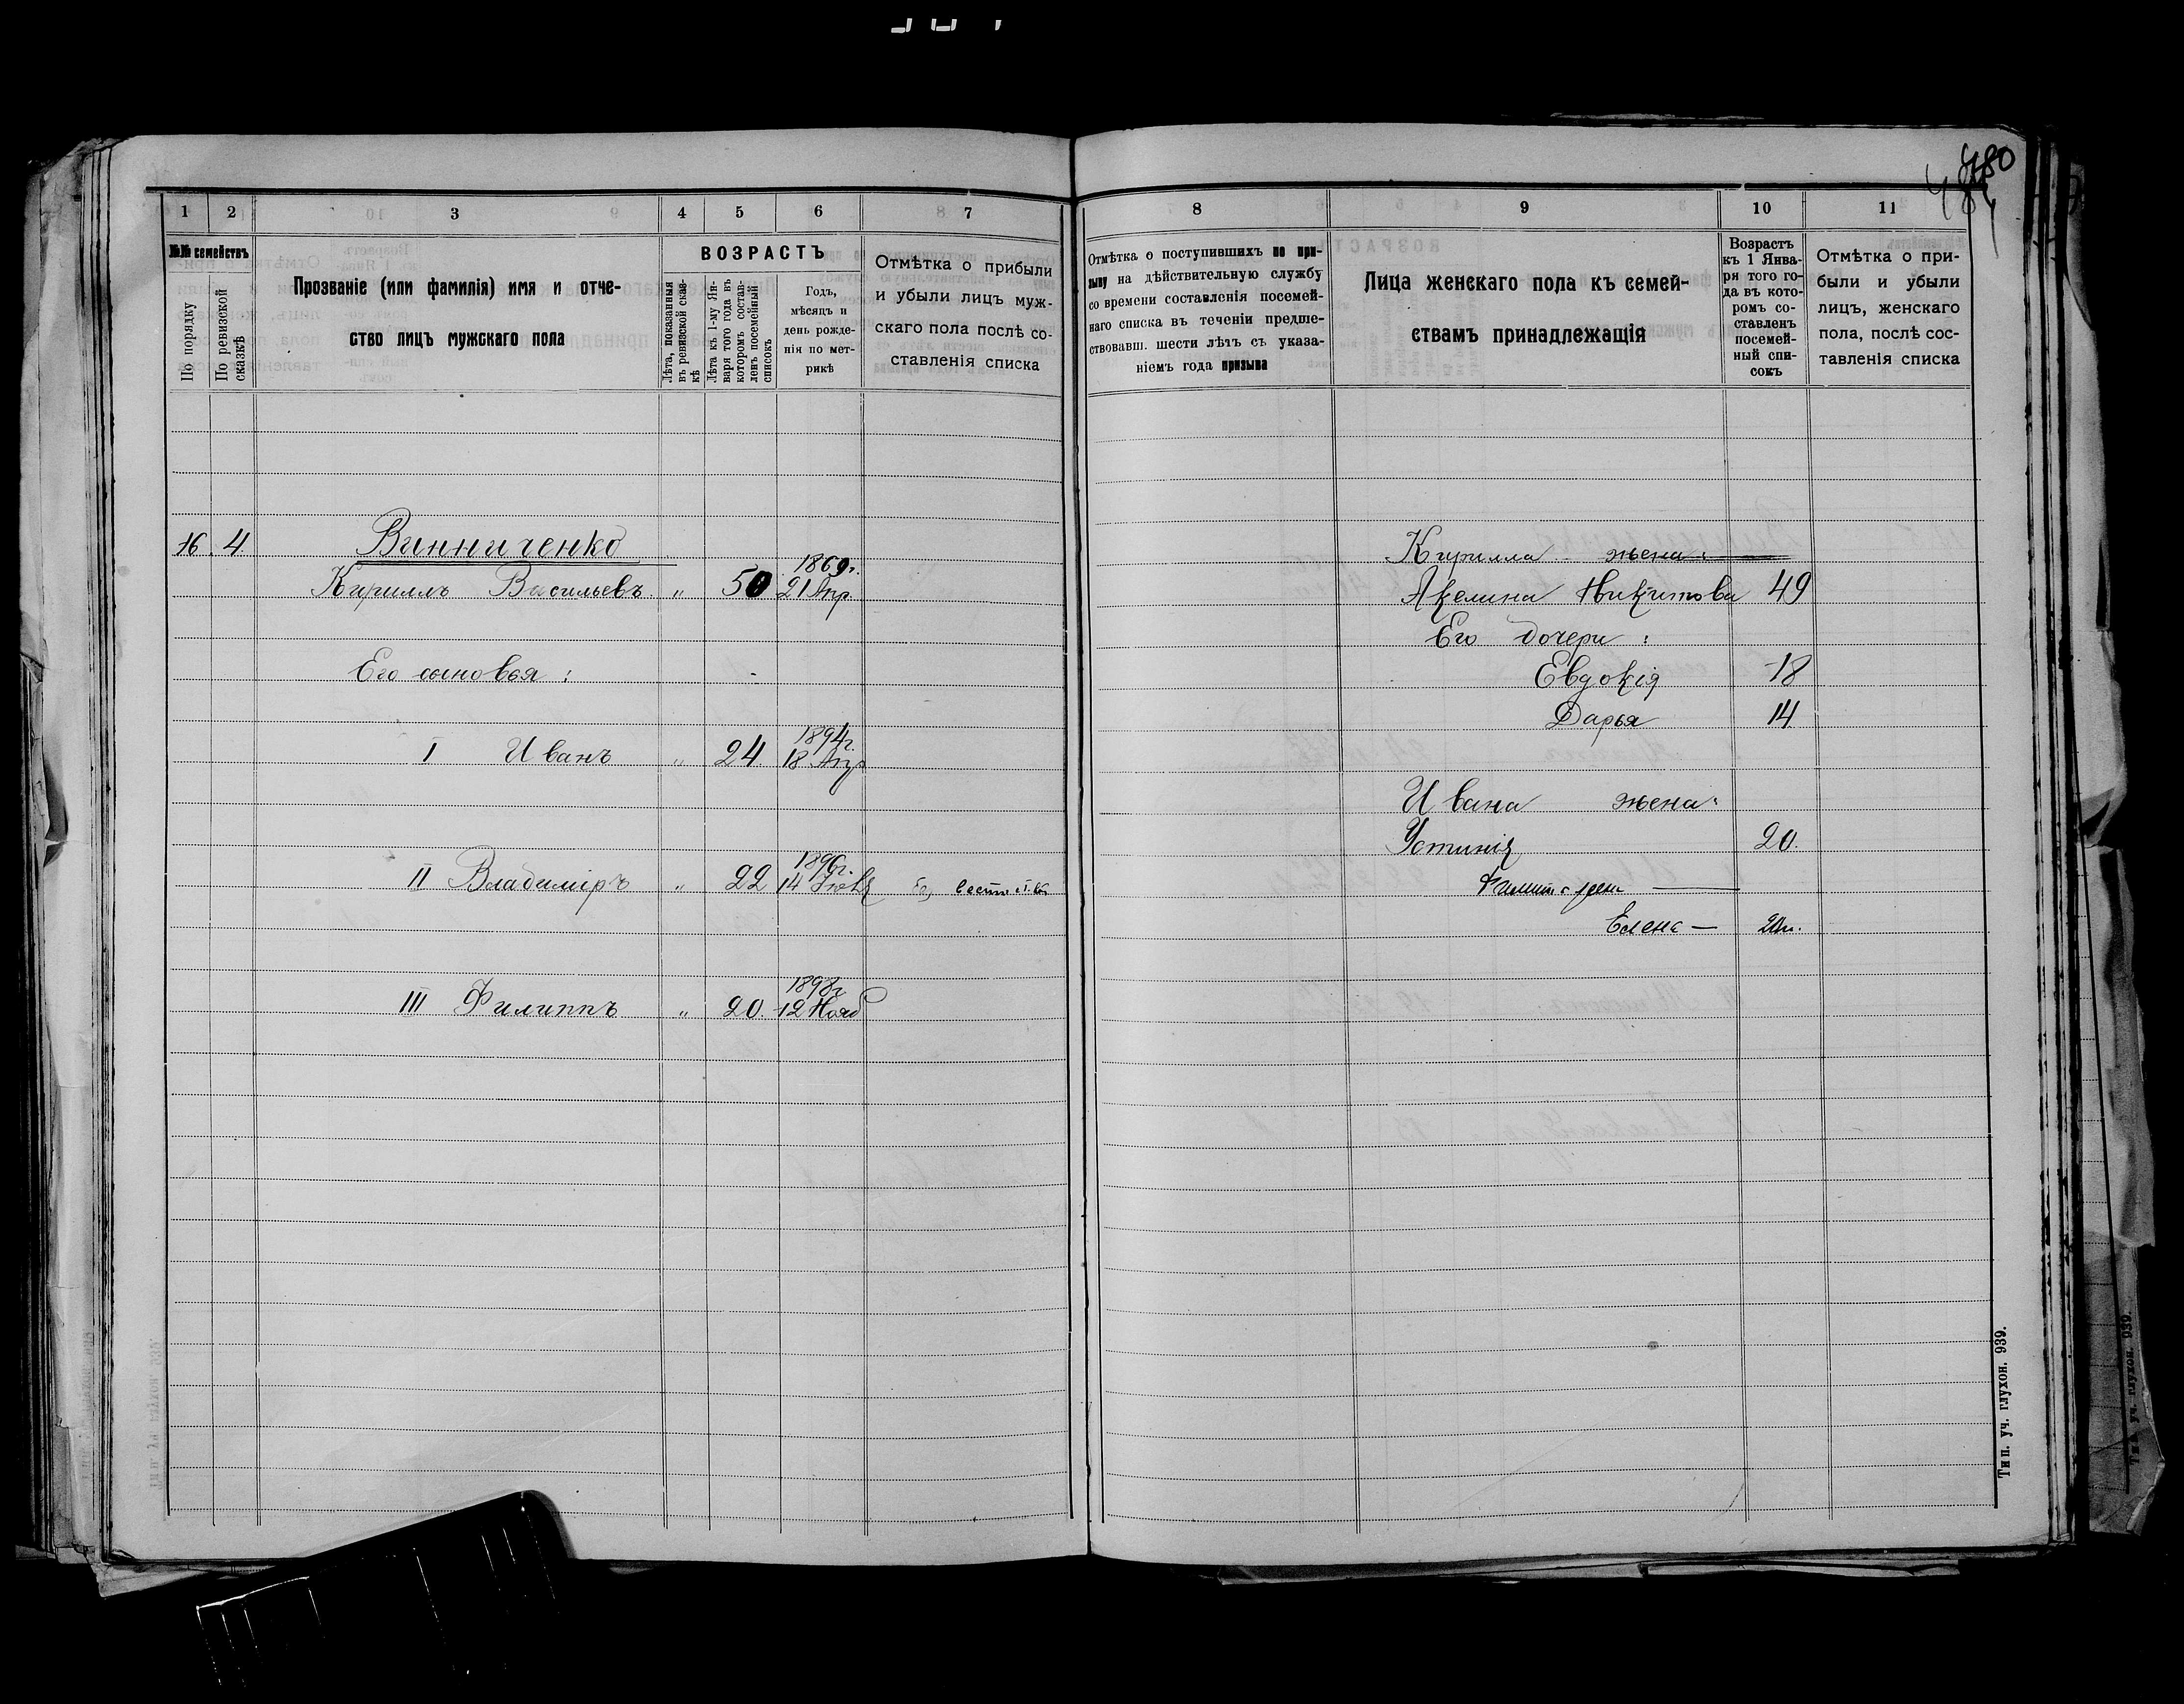 480
1 2 3 4 5 6 7
№№ семействъ
По порядку
По ревизской сказкѣ
Прозваніе (или фамилія) имя и отче-
ство лицъ мужскаго пола
ВОЗРАСТЪ
Лѣта, показанныя
въ ревизской сказ-
кѣ
Лѣта къ 1-му Ян-
варя того года въ
которомъ состав-
ленъ посемейный
списокъ
Годъ,
мѣсяцъ и
день рожде-
нія по мет-
рикѣ
Отмѣтка о прибыли
и убыли лицъ муж-
скаго пола послѣ со-
ставленія списка
16 4. Винниченко
1869г.
Кириллъ Васильевъ. " 50 21 Апр.
Его сыновья:
1894г.
I Иванъ " 24. 18 Апр
1896г.
II Владиміръ " 22 14
1898г
III Филиппъ " 20. 12 Нояб
8 9 10 11
Отмѣтка о поступившихъ по при-
зыву на дѣйствительную службу
со времени составленія посемей-
наго списка въ теченіи предше-
ствовавш. шести лѣтъ съ указа-
ніемъ года призыва
Лица женскаго пола къ семей-
ствамъ принадлежащія
Возрастъ
къ 1 Янва-
ря того го-
да въ кото-
ромъ со-
ставленъ
посемей-
ный спи-
сокъ
Отмѣтка о при-
были и убыли
лицъ, женскаго
пола, послѣ сос-
тавленія списка
Кирилла жена:
Акелина Никитова 49
Его дочери:
Евдокія 18
Дарья 14
Ивана жена:
Устинія 20.
Елена —
Тип. уч. глухон. 939.